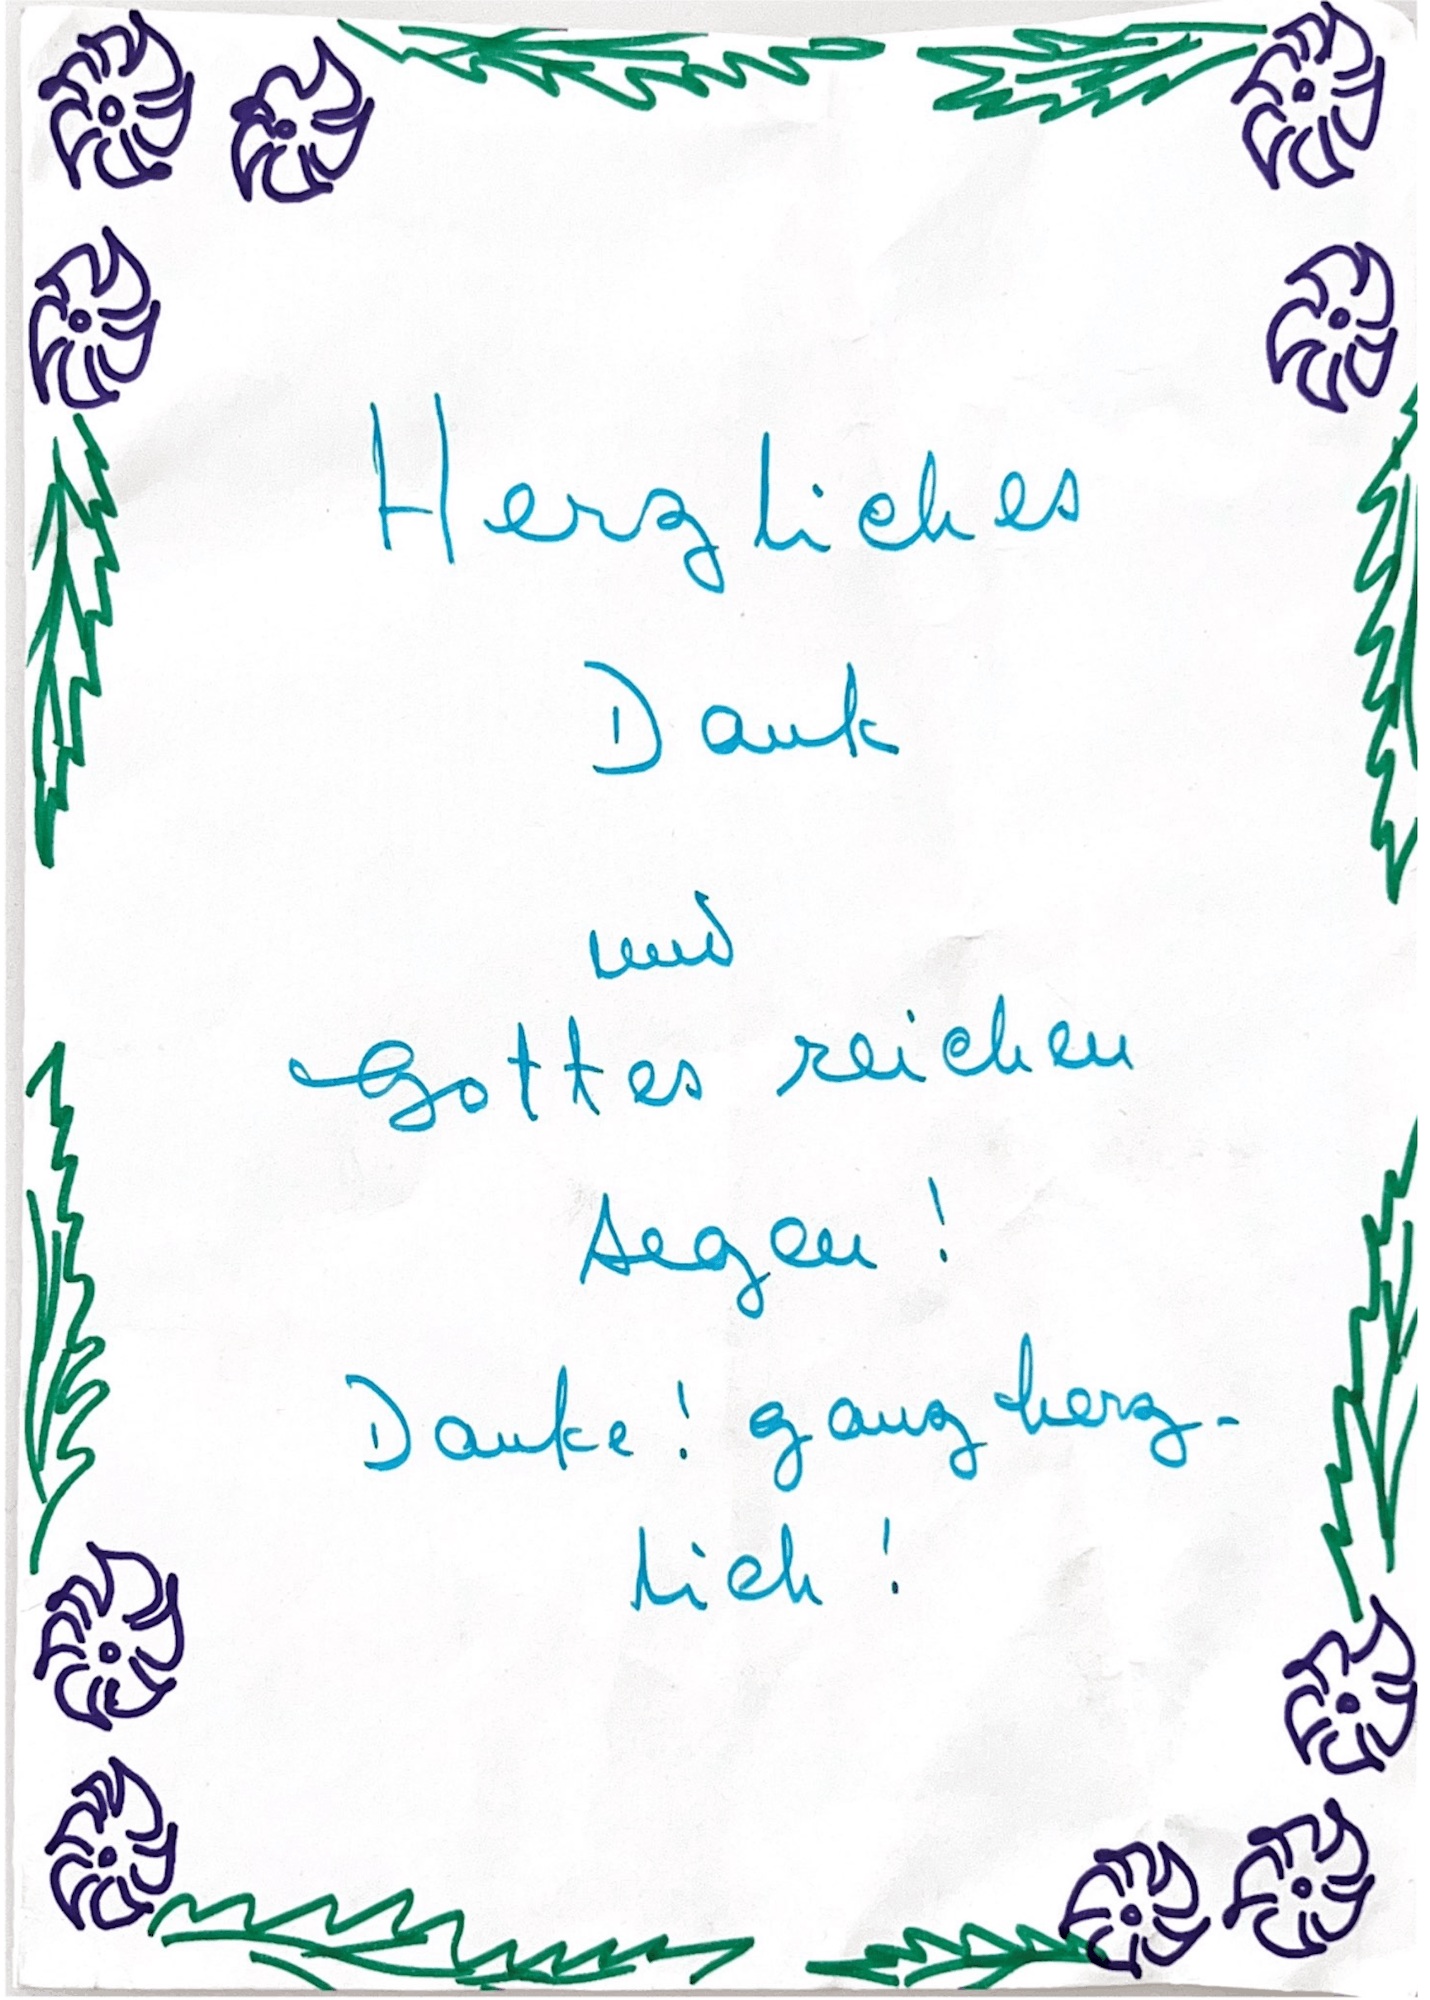 Herzliches
Dank
und
Gottes reichen
Segen!
Danke! ganz herz-
lich!